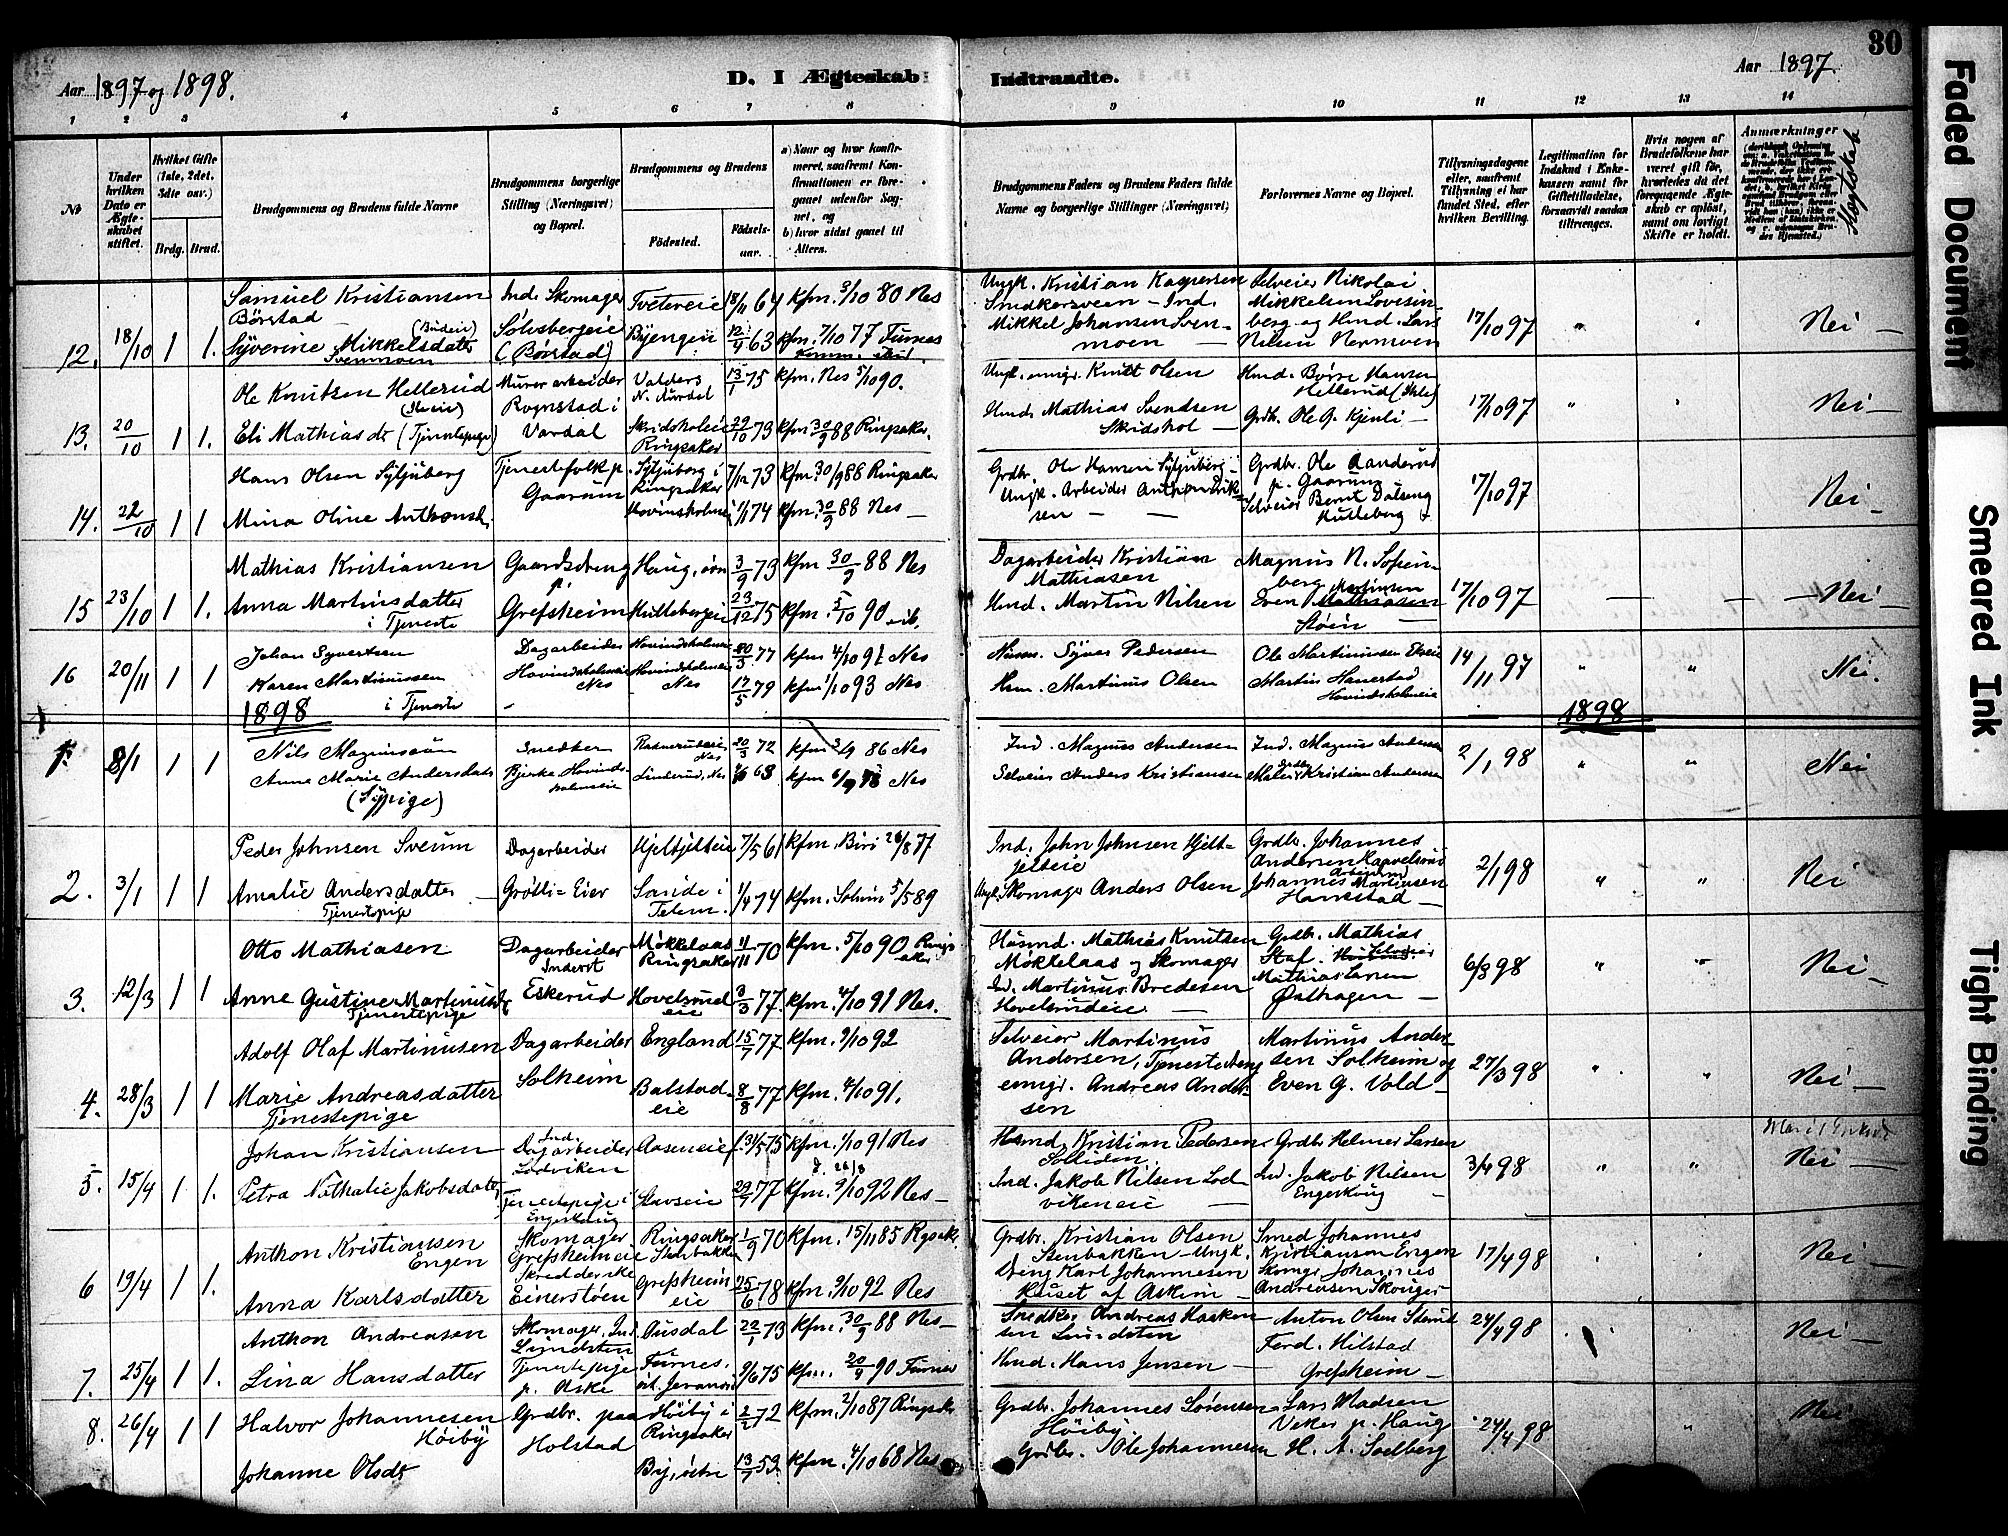 Aar 1897 og 1898.
D. I Ægteskab
Indtraadte.
Aar 1897.
30
1 2 3 4 5 6 7 8 9 10 11 12 13 14
No
Under hvilken Dato er Ægteskabet stiftet.
Hvilket Gifte (1ste, 2det, 3die osv.)
Brdg. Brud.
Brudgommens og Brudens fulde Navne
Brudgommens borgerlige Stilling (Næringsvei) og Bopæl.
Brudgommens og Brudens
Fødested.
Fødselsaar.
a) Naar og hvor konfirmeret, saafremt Konfirmationen er foregaaet udenfor Sognet, og
b) hvor sidst gaaet til Alters.
Brudgommens Faders og Brudens Faders fulde Navne og borgerlige Stillinger (Næringsvei)
Forlovernes Navne og Bopæl.
Tillysningsdagene eller, saafremt Tillysning ei har fundet Sted, efter hvilken Bevilling.
Legitimation for Indskud i Enkekassen samt for Giftetilladelse, forsaavidt saadan tiltrænges.
Hvis nogen af Brudefolkene har været gift før, hvorledes da det foregaaende Ægteskab er opløst, samt om lovligt Skifte er holdt.
Anmærkninger
Slægtskab
12. 18/10 1 1.
Samuel Kristiansen Børstad
Syverine Mikkelsdatter (Budeie) Svenmoen
Ind. Skomager Sølvsbergeie (Børstad)
Tvetereie 18/11 64 kfm. 3/10 80 Nes
Byengeie 12/4 63 kfm. 7/10 77 Furnes
Ungk. Kristian Kaspersen Smedkersveen - Ind. Mikkel Johansen Svenmoen
Selveier Nikolai Mikkelsen Lovisenberg og Hmd. Lars Nilsen Nermoen
17/10 97 " " Nei
13. 20/10 1 1.
Ole Knutsen Hellerud
Eli Mathiasdt. (Tjenestepige)
Murerarbeider Rognstad i Vardal
Valders N. Aurdal 13/1 75 kfm. Nes 5/10 90.
Skridsholeie Ringsaker 29/10 73 kfm. 30/9 88 Ringsaker.
Ungk. emigr. Knut Olsen
Hmd. Mathias Svendsen Skridshol
Hmd. Børre Hansen Hellerud
Grdb. Ole G. Kjenli
17/10 97 " " Nei
14. 22/10 1 1
Hans Olsen Syljuberg
Mina Oline Anthonsd.
Tjenestefolk p. Gaarum
Syljuberg i Ringsaker 7/12 73 kfm. 30/9 88 Ringsaker
Hovinsholmeie 1/1 74 kfm. 30/9 88 Nes
Grdbr. Ole Hansen Syljuberg
Ungk. Arbeider Anthon Eriksen
Grdbr. Ole Aanderud p. Gaarum
Selveier Bernt Dalseng Hulleberg
17/10 97 Nei
15 23/10 1 1.
Mathias Kristiansen
Anna Martinsdatter i Tjeneste
Gaardsdreng p. Grefsheim
Haug, ovn 3/9 73 kfm 30/9 88 Nes
Hullebergeie 23/12 75 kfm. 5/10 90 ib.
Dagarbeider Kristian Mathiasen
Hmd. Martin Nilsen
Magnus N. Sofienberg
Even Martinsen Støen
17/10 97 Nei
16 20/11 1 1
Johan Syvertsen
Karen Martinussen i Tjeneste
Dagarbeider Hovindsholmeie Nes
Hovindsholmeie 30/3 77 kfm 4/10 91 Nes
Hovindsholmeie Nes 17/5 79 kfm 1/10 93 Nes
Husm. Syver Pedersen
Hsm. Martinus Olsen
Ole Martinussen Eveie
Martin Hanestad Hovindsholmeie
14/11 97 " " Nei.
1898
1898
1. 8/1 1 1
Nils Magnussen
Anne Marie Andersdatr (Sypige)
Snedker Bjerke Hovindsholmeie
Nes 20/3 72 kfm 86 Nes
Linderud, Nes 63 kfm Nes
Ind. Magnus Andersen
Selveier Anders Kristiansen
Ind. Magnus Andersen
Maler Kristian Andersen
2/1 98 " " Nei
2. 3/1 1 1
Peder Johnsen Sveum
Amalie Andersdatter Tjenestepige
Dagarbeider Grøtli-Eier
Hjeltjelteie 7/5 61 kfm. Biri 26/8 77
Sande i Telem. 1/4 74 kfm. Solum 5/5 89
Ind. John Johnsen Hjeltjelteie
Ungk. Skomager Anders Olsen
Grdbr. Johannes Andersen
Johannes Martinsen Hanestad
2/1 98 " " Nei
3. 12/3 1 1
Otto Mathiasen
Anne Gustine Martinusd. Tjenestepige
Dagarbeider Inderst Eskerud
Møkkelaas Ringsaker 11/11 70 kfm. 5/10 90 Ringsaker
Hovelsrudeie 3/3 77. kfm. 4/10 91 Nes.
Husmd. Mathias Knutsen Møkkelaas og Skomager Ind. Martinus Bredesen Hovelsrudeie
Grdb. Mathias Staf. Selveier Mathias Larsen Østhagen
6/3 98 " " Nei
4. 28/3 1 1
Adolf Olaf Martinusen
Marie Andreasdatter Tjenestepige
Dagarbeider Solheim
England 15/7 77. kfm. 2/10 92
Balstadeie 8/8 77 kfm. 4/10 91.
Selveier Martinus Andersen, Tjenestedreng emigr. Andreas Andersen
Martinus Andersen Solheim og Even G. Vold
27/3 98 " " Nei
5. 15/4 1 1.
Johan Kristiansen
Petra Nathalie Jakobsdatter
Ind. Dagarbeider Lodviken
Tjenestepige i Engerhaug
Aaseneie f. 31/5 75 kfm. 4/10 91 Nes
Stavseie 29/7 77 kfm. 2/10 92 Nes
Hsmd. Kristian Pedersen Solliden
Ind. Jakob Nilsen Lodvikeneie
Grdbr Helmer Larsen
Ind. Jakob Nilsen Engerhaug
3/4 98 " " Nei
6 19/4 1 1.
Anthon Kristiansen Engen
Anna Karlsdatter
Skomager Grefsheimeie
Skredderske Einerstøen
Ringsaker Stenbakken 1/9 70 kfm. 15/11 85 Rgsak.
Grefsheimeie 25/6 78 kfm. 2/10 92 Nes
Grdbr. Kristian Olsen Stenbakken - Ungk. Dreng Karl Johannesen Kuiset af Askim
Smed Johannes Kristiansen Engen
Skomgr Johannes Andreasen Skonger
17/4 98 Nei
7. 25/4 1 1.
Anthon Andreasen
Lina Hansdatter
Skomager, Ind. Lundsten
Tjenestepige p. Aske
Ausdal 22/1 73 kfm. 30/9 88 Nes
Furnes. 9/6 75 kfm. 20/4 90 Furnes
Snedker Andreas Haakensen Lundsten
Hmd. Hans Jensen
Anton Olsen Stensrud
Ferd. Hilstad Grefsheim
24/4 98 Nei
8. 26/4 1 1
Halvor Johannesen Høiby
Johanne Olsdt
Grdbr. paa Holstad
Høiby i Ringsaker 2/2 72 kfm. 2/10 87 Ringsaker
By, østre 13/7 53. kfm. 4/10 68 Nes
Grdbr. Johannes Sørensen Høiby.
Grdbr. Ole Johannesen
Lars Madsen Veker p. Haug
H. A. Soelberg
24/4 98 " Nei
Faded Document
Smeared Ink
Tight Binding